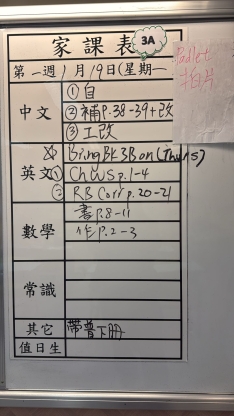 家課表
3A
Padlet
拍片
第一週1月19日(星期一
中文
①自
②補P.38-39+改
③工改
英文
☆ Bring Bk 3B on (Thurs)
① Ch WS p.1-4
② RB Corr p.20-21
數學
書P.8-11
作P.2-3
常識
其它
帶普下冊
值日生